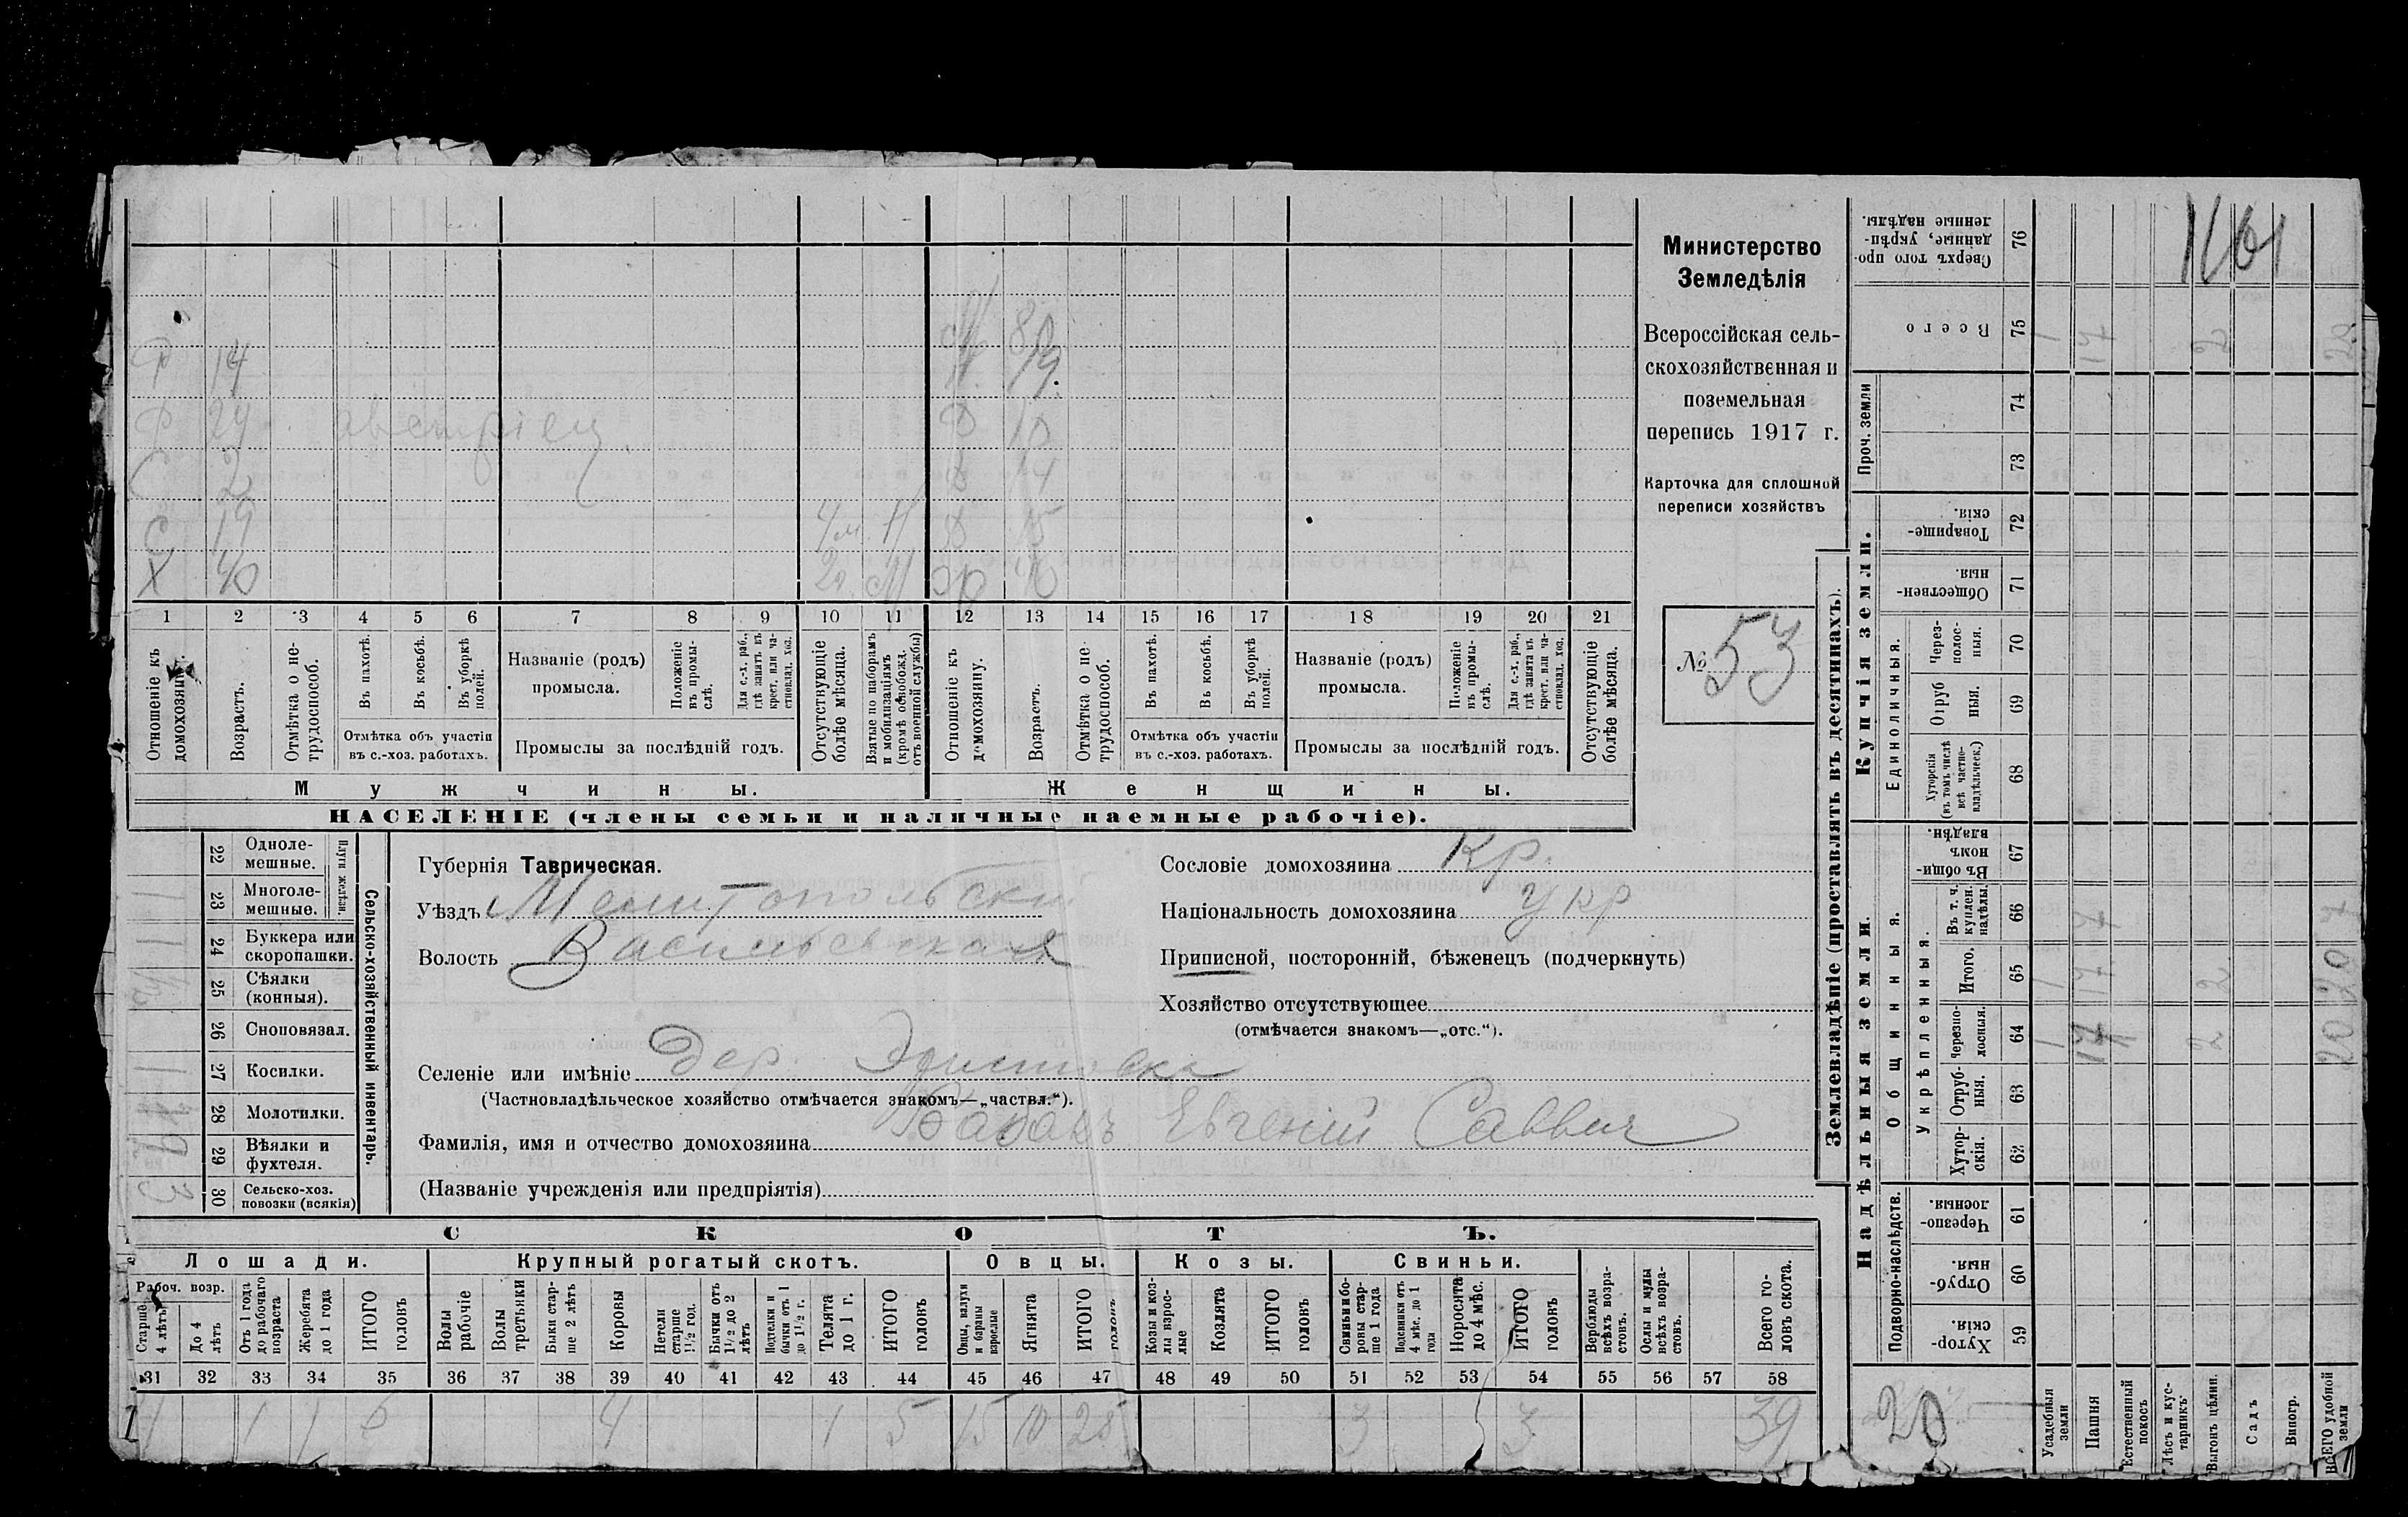 М 80
Ф 14 М. 19.
Ф 24 австріец Ф 10
С 2 Д 14
С 19 4 м. Н Д 15
Х 40 2 г. М ж 40
1 2 3 4 5 6 7 8 9 10 11 12 13 14 15 16 17 18 19 20 21
Отношеніе къ домохозяину.
Возрастъ.
Отмѣтка о нетрудоспособ.
Въ пахотѣ.
Въ косьбѣ.
Въ уборкѣ полей.
Отмѣтка объ участіи
въ с.-хоз. работахъ.
Названіе (родъ)
промысла.
Положеніе въ промыслѣ.
Для с.-х. раб., гдѣ занятъ въ крест. или частновлад. хоз.
Промыслы за послѣдній годъ.
Отсутствующіе болѣе мѣсяца.
Взятые по наборамъ и мобилизаціямъ (кромѣ освобожд. отъ военной службы)
Отношеніе къ домохозяину.
Возрастъ.
Отмѣтка о нетрудоспособ.
Въ пахотѣ.
Въ косьбѣ.
Въ уборкѣ полей.
Отмѣтка объ участіи
въ с.-хоз. работахъ.
Названіе (родъ)
промысла.
Положеніе въ промыслѣ.
Для с.-х. раб., гдѣ занята въ крест. или частновлад. хоз.
Промыслы за послѣдній годъ.
Отсутствующіе болѣе мѣсяца.
Мужчины. Женщины.
НАСЕЛЕНІЕ (члены семьи и наличные наемные рабочіе).
Министерство
Земледѣлія
Всероссійская сель-
скохозяйственная и
поземельная
перепись 1917 г.
Карточка для сплошной
переписи хозяйствъ
№ 53
Сельско-хозяйственный инвентарь.
Плуги желѣзн.
22 Одноле-
мешные.
23 Многоле-
мешные.
24 Буккера или
скоропашки.
25 Сѣялки
(конныя).
26 Сноповязал.
27 Косилки.
28 Молотилки.
29 Вѣялки и
фухтеля.
30 Сельско-хоз.
повозки (всякія)
Губернія Таврическая.
Уѣздъ Мелитопольскій
Волость Васильевская
Сословіе домохозяина Кр.
Національность домохозяина Укр
Приписной, посторонній, бѣженецъ (подчеркнуть)
Хозяйство отсутствующее
(отмѣчается знакомъ—„отс.“).
Селеніе или имѣніе Дер. Эристовка
(Частновладѣльческое хозяйство отмѣчается знакомъ—„частвл.“).
Фамилія, имя и отчество домохозяина Бабакъ Евгеній Саввич
(Названіе учрежденія или предпріятія)
СКОТЪ.
Лошади. Крупный рогатый скотъ. Овцы. Козы. Свиньи.
Рабоч. возр.
Старше 4 лѣтъ
До 4 лѣтъ
Отъ 1 года до рабочаго возраста
Жеребята до 1 года
ИТОГО головъ
Волы рабочіе
Волы третьяки
Быки старше 2 лѣтъ
Коровы
Нетели старше 1½ год.
Бычки отъ 1½ до 2 лѣтъ
Подтелки и бычки отъ 1 до 1½ г.
Телята до 1 г.
ИТОГО головъ
Овцы, валухи и бараны взрослые
Ягнята
ИТОГО головъ
Козы и козлы взрослые
Козлята
ИТОГО головъ
Свиньи и боровы старше 1 года
Подсвинки отъ 4 мѣс. до 1 года
Поросята до 4 мѣс.
ИТОГО головъ
Верблюды всѣхъ возрастовъ.
Ослы и мулы всѣхъ возрастовъ.
Всего головъ скота.
31 32 33 34 35 36 37 38 39 40 41 42 43 44 45 46 47 48 49 50 51 52 53 54 55 56 57 58
4 1 1 6 4 1 5 15 10 25 3 3 39
Землевладѣніе (проставлять въ десятинахъ).
Купчія земли.
Надѣльныя земли.
Проч. земли
Единоличныя.
Общинныя.
Укрѣпленныя.
Подворно-наслѣдств.
Сверхъ того проданные, укрѣпленные надѣлы. 76
Всего 75 1 17 2 20
74
73
Товарищескія. 72
Общественныя. 71
Черезполосныя. 70
Отрубныя. 69
Хуторскія (въ томъ числѣ всѣ частновладѣльческ.) 68
Въ общинномъ владѣн. 67
Въ т. ч. куплен. надѣлы. 66 7 7
Итого. 65 1 17 2 20
Черезполосныя. 64 1 17 2 20
Отрубныя. 63
Хуторскія. 62
Черезполосныя. 61
Отрубныя. 60
Хуторскія. 59
Усадебныя земли
Пашня
Естественный покосъ
Лѣсъ и кустарникъ
Выгонъ цѣлин.
Садъ
Виногр.
ВСЕГО удобной земли
1161
20